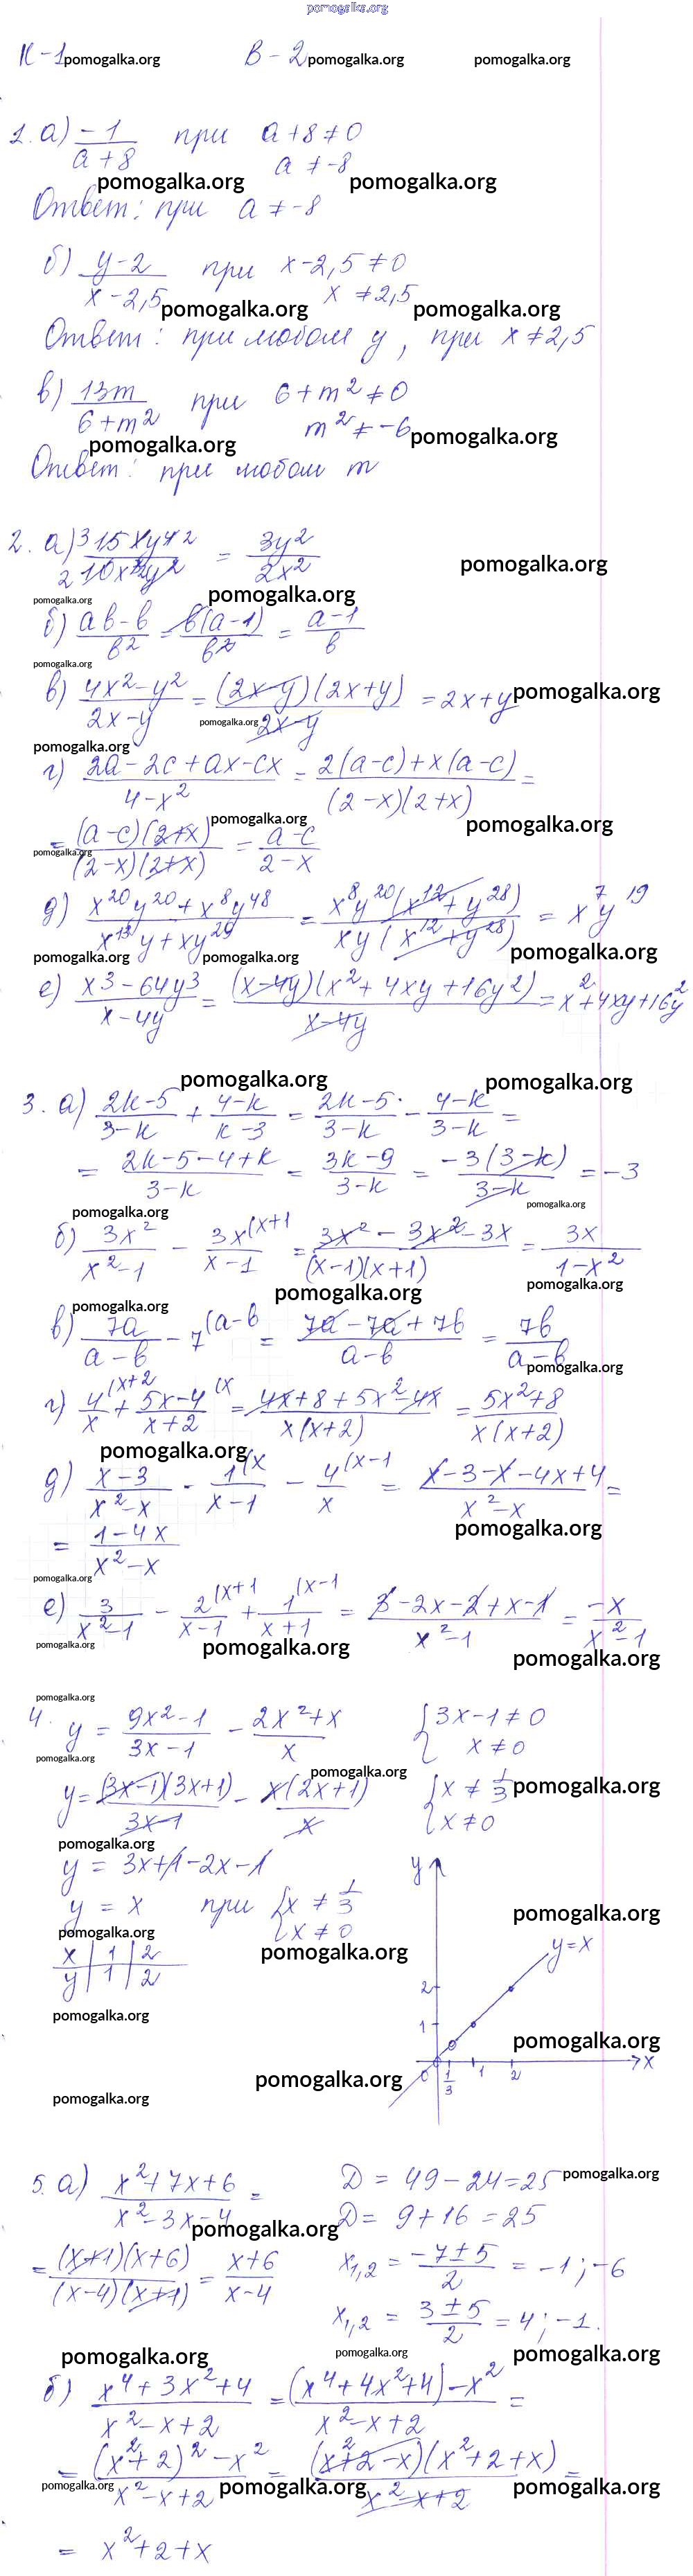 pomogalka.org
К-1 pomogalka.org В-2 pomogalka.org pomogalka.org
1. а) -1/(a+8) при a+8≠0
a≠-8
pomogalka.org pomogalka.org
Ответ: при a≠-8
б) (y-2)/(x-2,5) при x-2,5≠0
x≠2,5
pomogalka.org pomogalka.org
Ответ: при любом y, при x≠2,5
в) 13m/(6+m²) при 6+m²≠0
m²≠-6
pomogalka.org pomogalka.org
Ответ: при любом m
pomogalka.org
pomogalka.org pomogalka.org
б) (ab-b)/b² = b(a-1)/b² = (a-1)/b
pomogalka.org
в) (4x²-y²)/(2x-y) = (2x-y)(2x+y)/(2x-y) = 2x+y
pomogalka.org pomogalka.org
pomogalka.org
г) (2a-2c+ax-cx)/(4-x²) = (2(a-c)+x(a-c))/((2-x)(2+x)) =
pomogalka.org pomogalka.org
= (a-c)(2+x)/((2-x)(2+x)) = (a-c)/(2-x)
pomogalka.org
д) (x²⁰y²⁰+x⁸y⁴⁸)/(x¹³y+xy²⁹) = x⁸y²⁰(x¹²+y²⁸)/(xy(x¹²+y²⁸)) = x⁷y¹⁹
pomogalka.org pomogalka.org pomogalka.org
е) (x³-64y³)/(x-4y) = (x-4y)(x²+4xy+16y²)/(x-4y) = x²+4xy+16y²
pomogalka.org pomogalka.org
3. а) (2k-5)/(3-k) + (4-k)/(k-3) = (2k-5)/(3-k) - (4-k)/(3-k) =
= (2k-5-4+k)/(3-k) = (3k-9)/(3-k) = -3(3-k)/(3-k) = -3
pomogalka.org pomogalka.org
б) 3x²/(x²-1) - 3x(x+1/(x-1) = (3x²-3x²-3x)/((x-1)(x+1)) = 3x/(1-x²)
pomogalka.org pomogalka.org
pomogalka.org
в) 7a/(a-b) - 7(a-b = (7a-7a+7b)/(a-b) = 7b/(a-b)
pomogalka.org
г) 4(x+2/x + (5x-4(x)/(x+2) = (4x+8+5x²-4x)/(x(x+2)) = (5x²+8)/(x(x+2))
pomogalka.org
д) (x-3)/(x²-x) - 1(x/(x-1) - 4(x-1/x = (x-3-x-4x+4)/(x²-x) =
pomogalka.org
= (1-4x)/(x²-x)
pomogalka.org
е) 3/(x²-1) - 2(x+1/(x-1) + 1(x-1/(x+1) = (3-2x-2+x-1)/(x²-1) = -x/(x²-1)
pomogalka.org pomogalka.org pomogalka.org
pomogalka.org
4. y = (9x²-1)/(3x-1) - (2x²+x)/x { 3x-1≠0
x≠0
pomogalka.org
pomogalka.org
y = (3x-1)(3x+1)/(3x-1) - x(2x+1)/x { x≠1/3
x≠0
pomogalka.org
pomogalka.org
y = 3x+1-2x-1
y = x при { x≠1/3
x≠0
pomogalka.org
pomogalka.org pomogalka.org
x | 1 | 2
y | 1 | 2
y
y=x
2
1
0 1/3 1 2 x
pomogalka.org pomogalka.org
pomogalka.org pomogalka.org
5. а) (x²+7x+6)/(x²-3x-4) = D = 49-24=25 pomogalka.org
pomogalka.org D = 9+16=25
= (x+1)(x+6)/((x-4)(x+1)) = (x+6)/(x-4) x₁,₂ = (-7±5)/2 = -1; -6
x₁,₂ = (3±5)/2 = 4; -1.
pomogalka.org pomogalka.org pomogalka.org
б) (x⁴+3x²+4)/(x²-x+2) = ((x⁴+4x²+4)-x²)/(x²-x+2) =
= ((x²+2)²-x²)/(x²-x+2) = (x²+2-x)(x²+2+x)/(x²-x+2) =
pomogalka.org pomogalka.org pomogalka.org
= x²+2+x